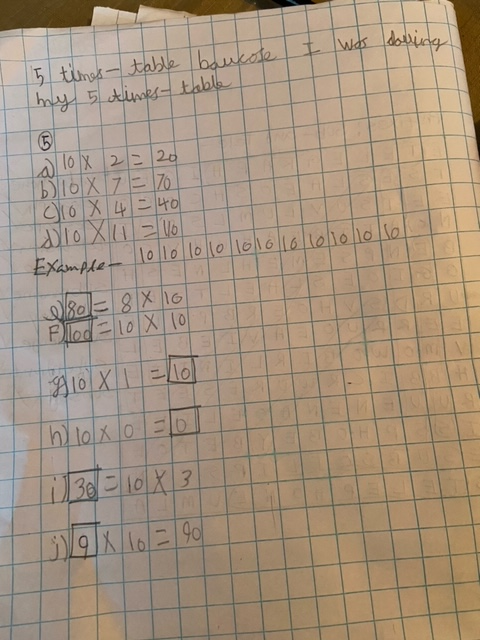 5 times-table baucose I was doing
my 5 times-table
⑤
a) 10 x 2 = 20
b) 10 x 7 = 70
c) 10 x 4 = 40
d) 10 x 11 = 110
Example- 10 10 10 10 10 10 10 10 10 10 10
e) 80 = 8 x 10
F) 100 = 10 x 10
g) 10 x 1 = 10
h) 10 x 0 = 0
i) 30 = 10 x 3
j) 9 x 10 = 90